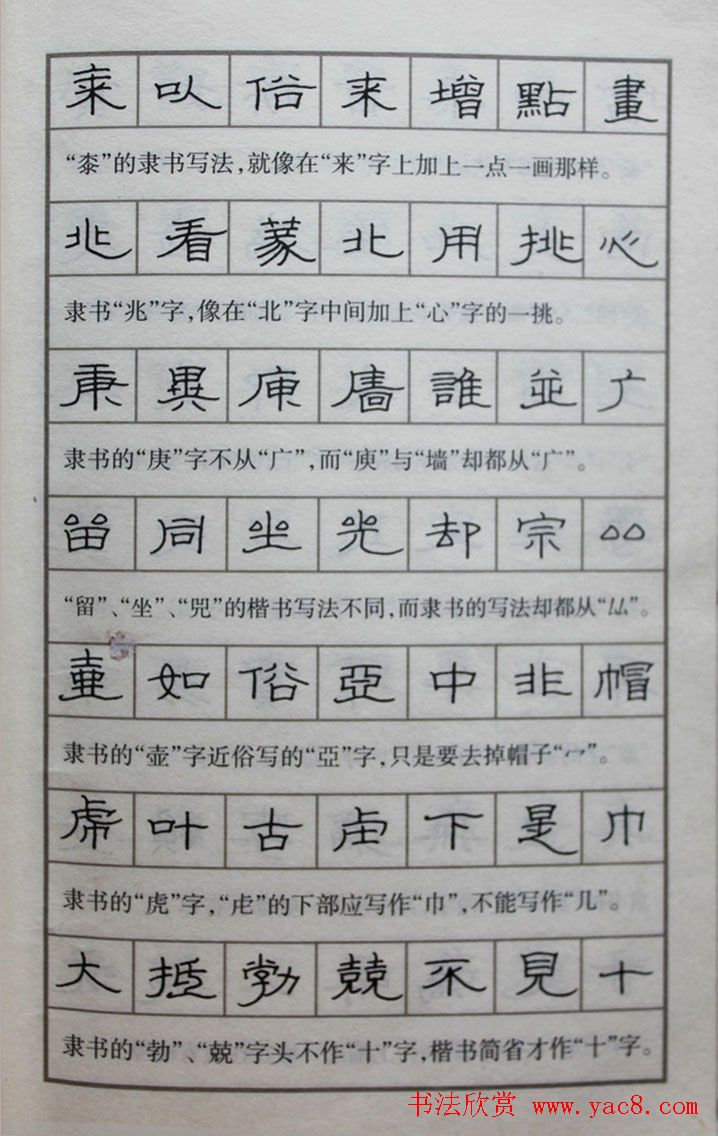 来㕥俗来增點畫
“桼”的隶书写法，就像在“来”字上加上一点一画那样。
兆看蒙北用挑心
隶书“兆”字，像在“北”字中间加上“心”字的一挑。
庚異庾廧誰並广
隶书的“庚”字不从“广”，而“庾”与“墙”却都从“广”。
留同坐光却宗厸
“留”、“坐”、“兕”的楷书写法不同，而隶书的写法却都从“厸”。
壷如俗亞中非帽
隶书的“壶”字近俗写的“亞”字，只是要去掉帽子“冖”。
虎叶古虍下是巾
隶书的“虎”字，“虍”的下部应写作“巾”，不能写作“几”。
大抵勃兢不見十
隶书的“勃”、“兢”字头不作“十”字，楷书简省才作“十”字。
书法欣赏 www.yac8.com